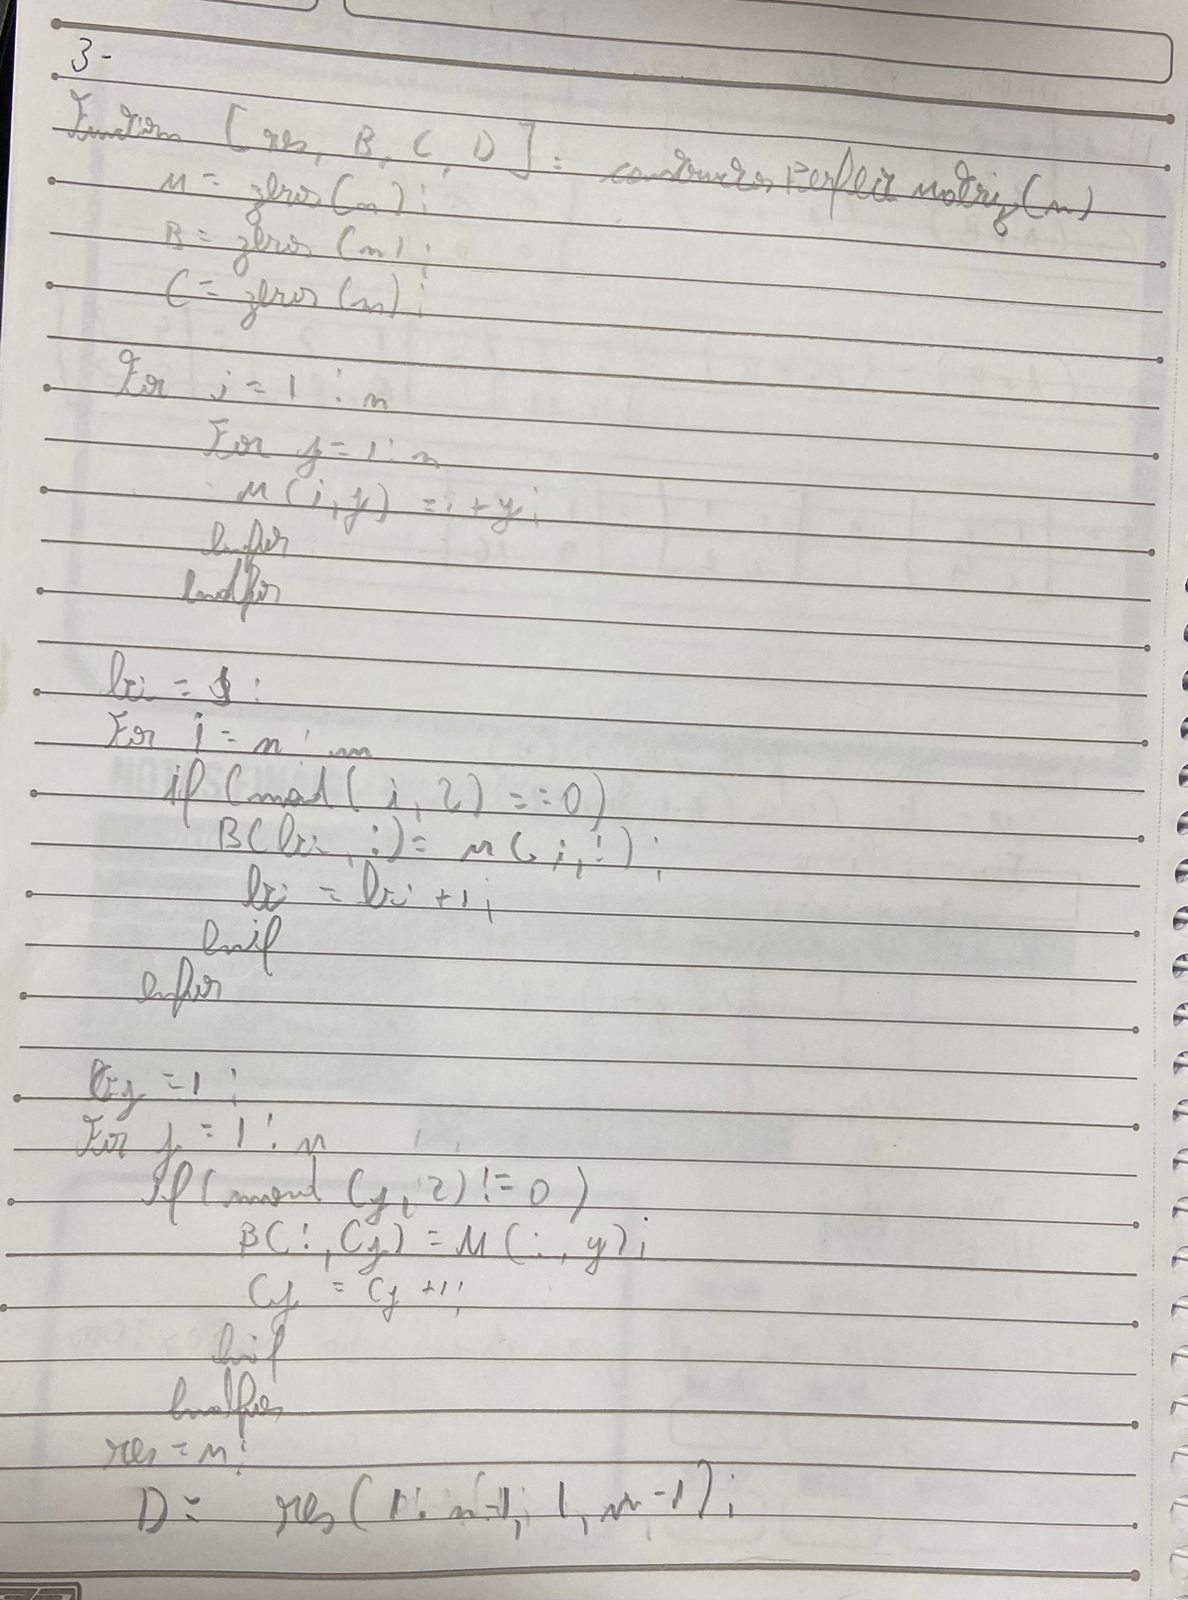 3-
Function [res, B, C, D] = construcaoPerfectMatriz(n)
M = zeros(n);
B = zeros(n);
C = zeros(n);
For i = 1 : n
For y = 1 : n
M(i,y) = i + y;
enfor
endfor
bi = 1;
For i = n : m
if (mod(i, 2) == 0)
B(bi, :) = M(i, :);
bi = bi + 1;
enif
enfor
Cy = 1;
For y = 1 : n
If (mod (y, 2) != 0)
B(:, Cy) = M(:, y);
Cy = Cy + 1;
enif
endfor
res = M;
D = res(1 : n-1, 1, n-1);